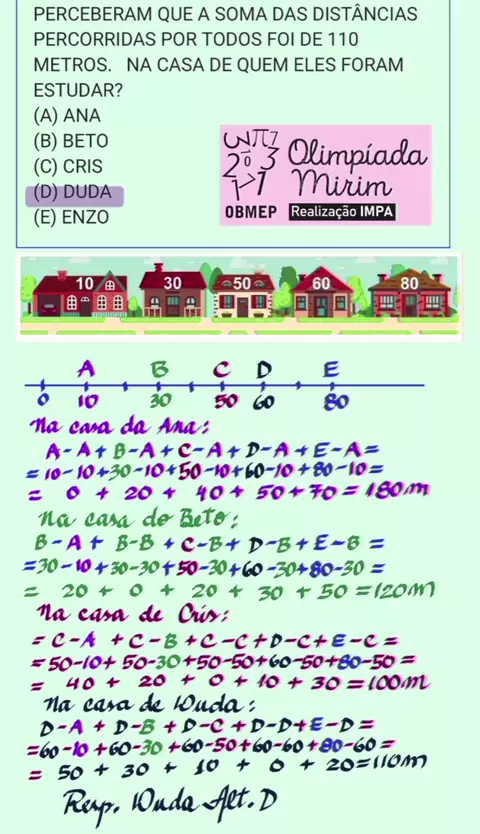 PERCEBERAM QUE A SOMA DAS DISTÂNCIAS
PERCORRIDAS POR TODOS FOI DE 110
METROS. NA CASA DE QUEM ELES FORAM
ESTUDAR?
(A) ANA
(B) BETO
(C) CRIS
(D) DUDA
(E) ENZO
Olimpíada
Mirim
OBMEP Realização IMPA
10 30 50 60 80
A B C D E
0 10 30 50 60 80
Na casa da Ana:
A-A+B-A+C-A+D-A+E-A=
=10-10+30-10+50-10+60-10+80-10=
= 0 + 20 + 40 + 50+70=180m
Na casa do Beto:
B-A+ B-B +C-B+ D-B+E-B =
=30-10+30-30+50-30+60-30+80-30 =
= 20 + 0 + 20 + 30 + 50 =120m
Na casa de Cris:
= C-A +C-B+C-C+D-C+E-C=
=50-10+50-30+50-50+60-50+80-50=
= 40 + 20 + 0 + 10 + 30 =100m
Na casa de Duda:
D-A + D-B + D-C + D-D+E-D=
=60-10+60-30+60-50+60-60+80-60=
= 50 + 30 + 10 + 0 + 20=110m
Resp. Duda Alt. D